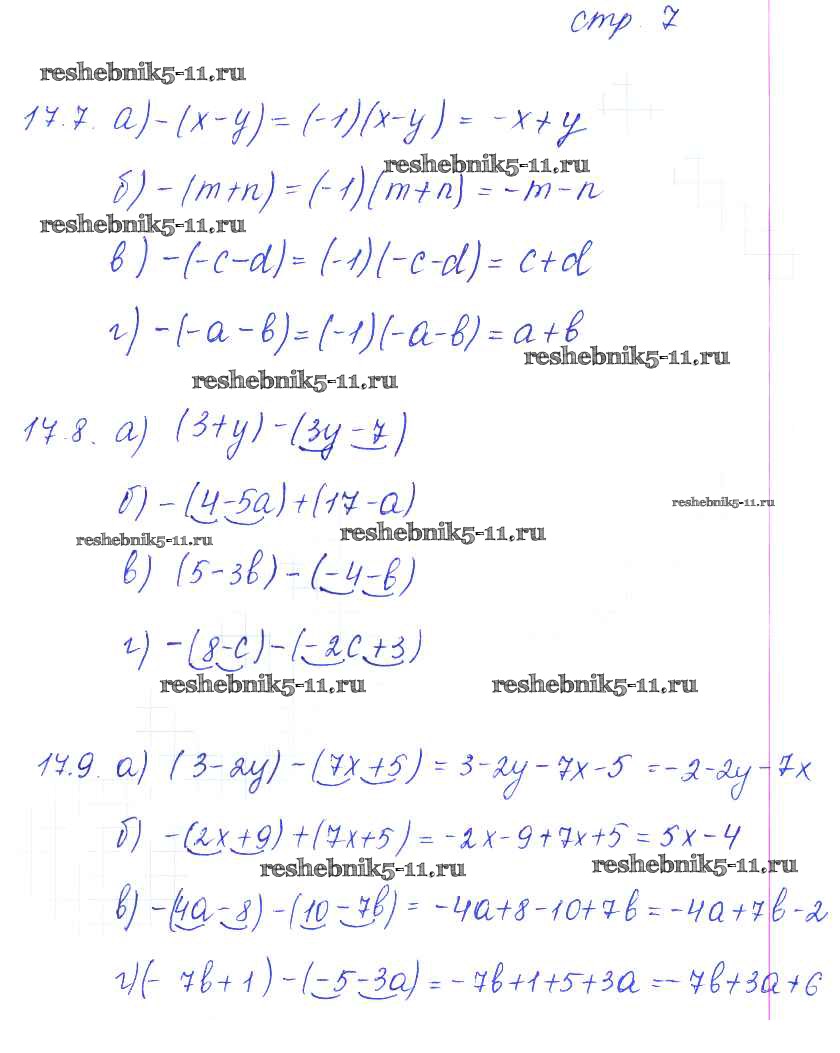 стр. 7
reshebnik5-11.ru
17.7. а) -(x-y) = (-1)(x-y) = -x+y
reshebnik5-11.ru
б) -(m+n) = (-1)(m+n) = -m-n
reshebnik5-11.ru
в) -(-c-d) = (-1)(-c-d) = c+d
г) -(-a-b) = (-1)(-a-b) = a+b
reshebnik5-11.ru
reshebnik5-11.ru
17.8. а) (3+y) -(3y-7)
б) -(4-5a)+(17-a)
reshebnik5-11.ru
reshebnik5-11.ru
reshebnik5-11.ru
в) (5-3b)-(-4-b)
г) -(8-c)-(-2c+3)
reshebnik5-11.ru
reshebnik5-11.ru
17.9. а) (3-2y) -(7x+5) = 3-2y-7x-5 = -2-2y-7x
б) -(2x+9)+(7x+5) = -2x-9+7x+5 = 5x-4
reshebnik5-11.ru
reshebnik5-11.ru
в) -(4a-8)-(10-7b) = -4a+8-10+7b = -4a+7b-2
г) (-7b+1)-(-5-3a) = -7b+1+5+3a = -7b+3a+6